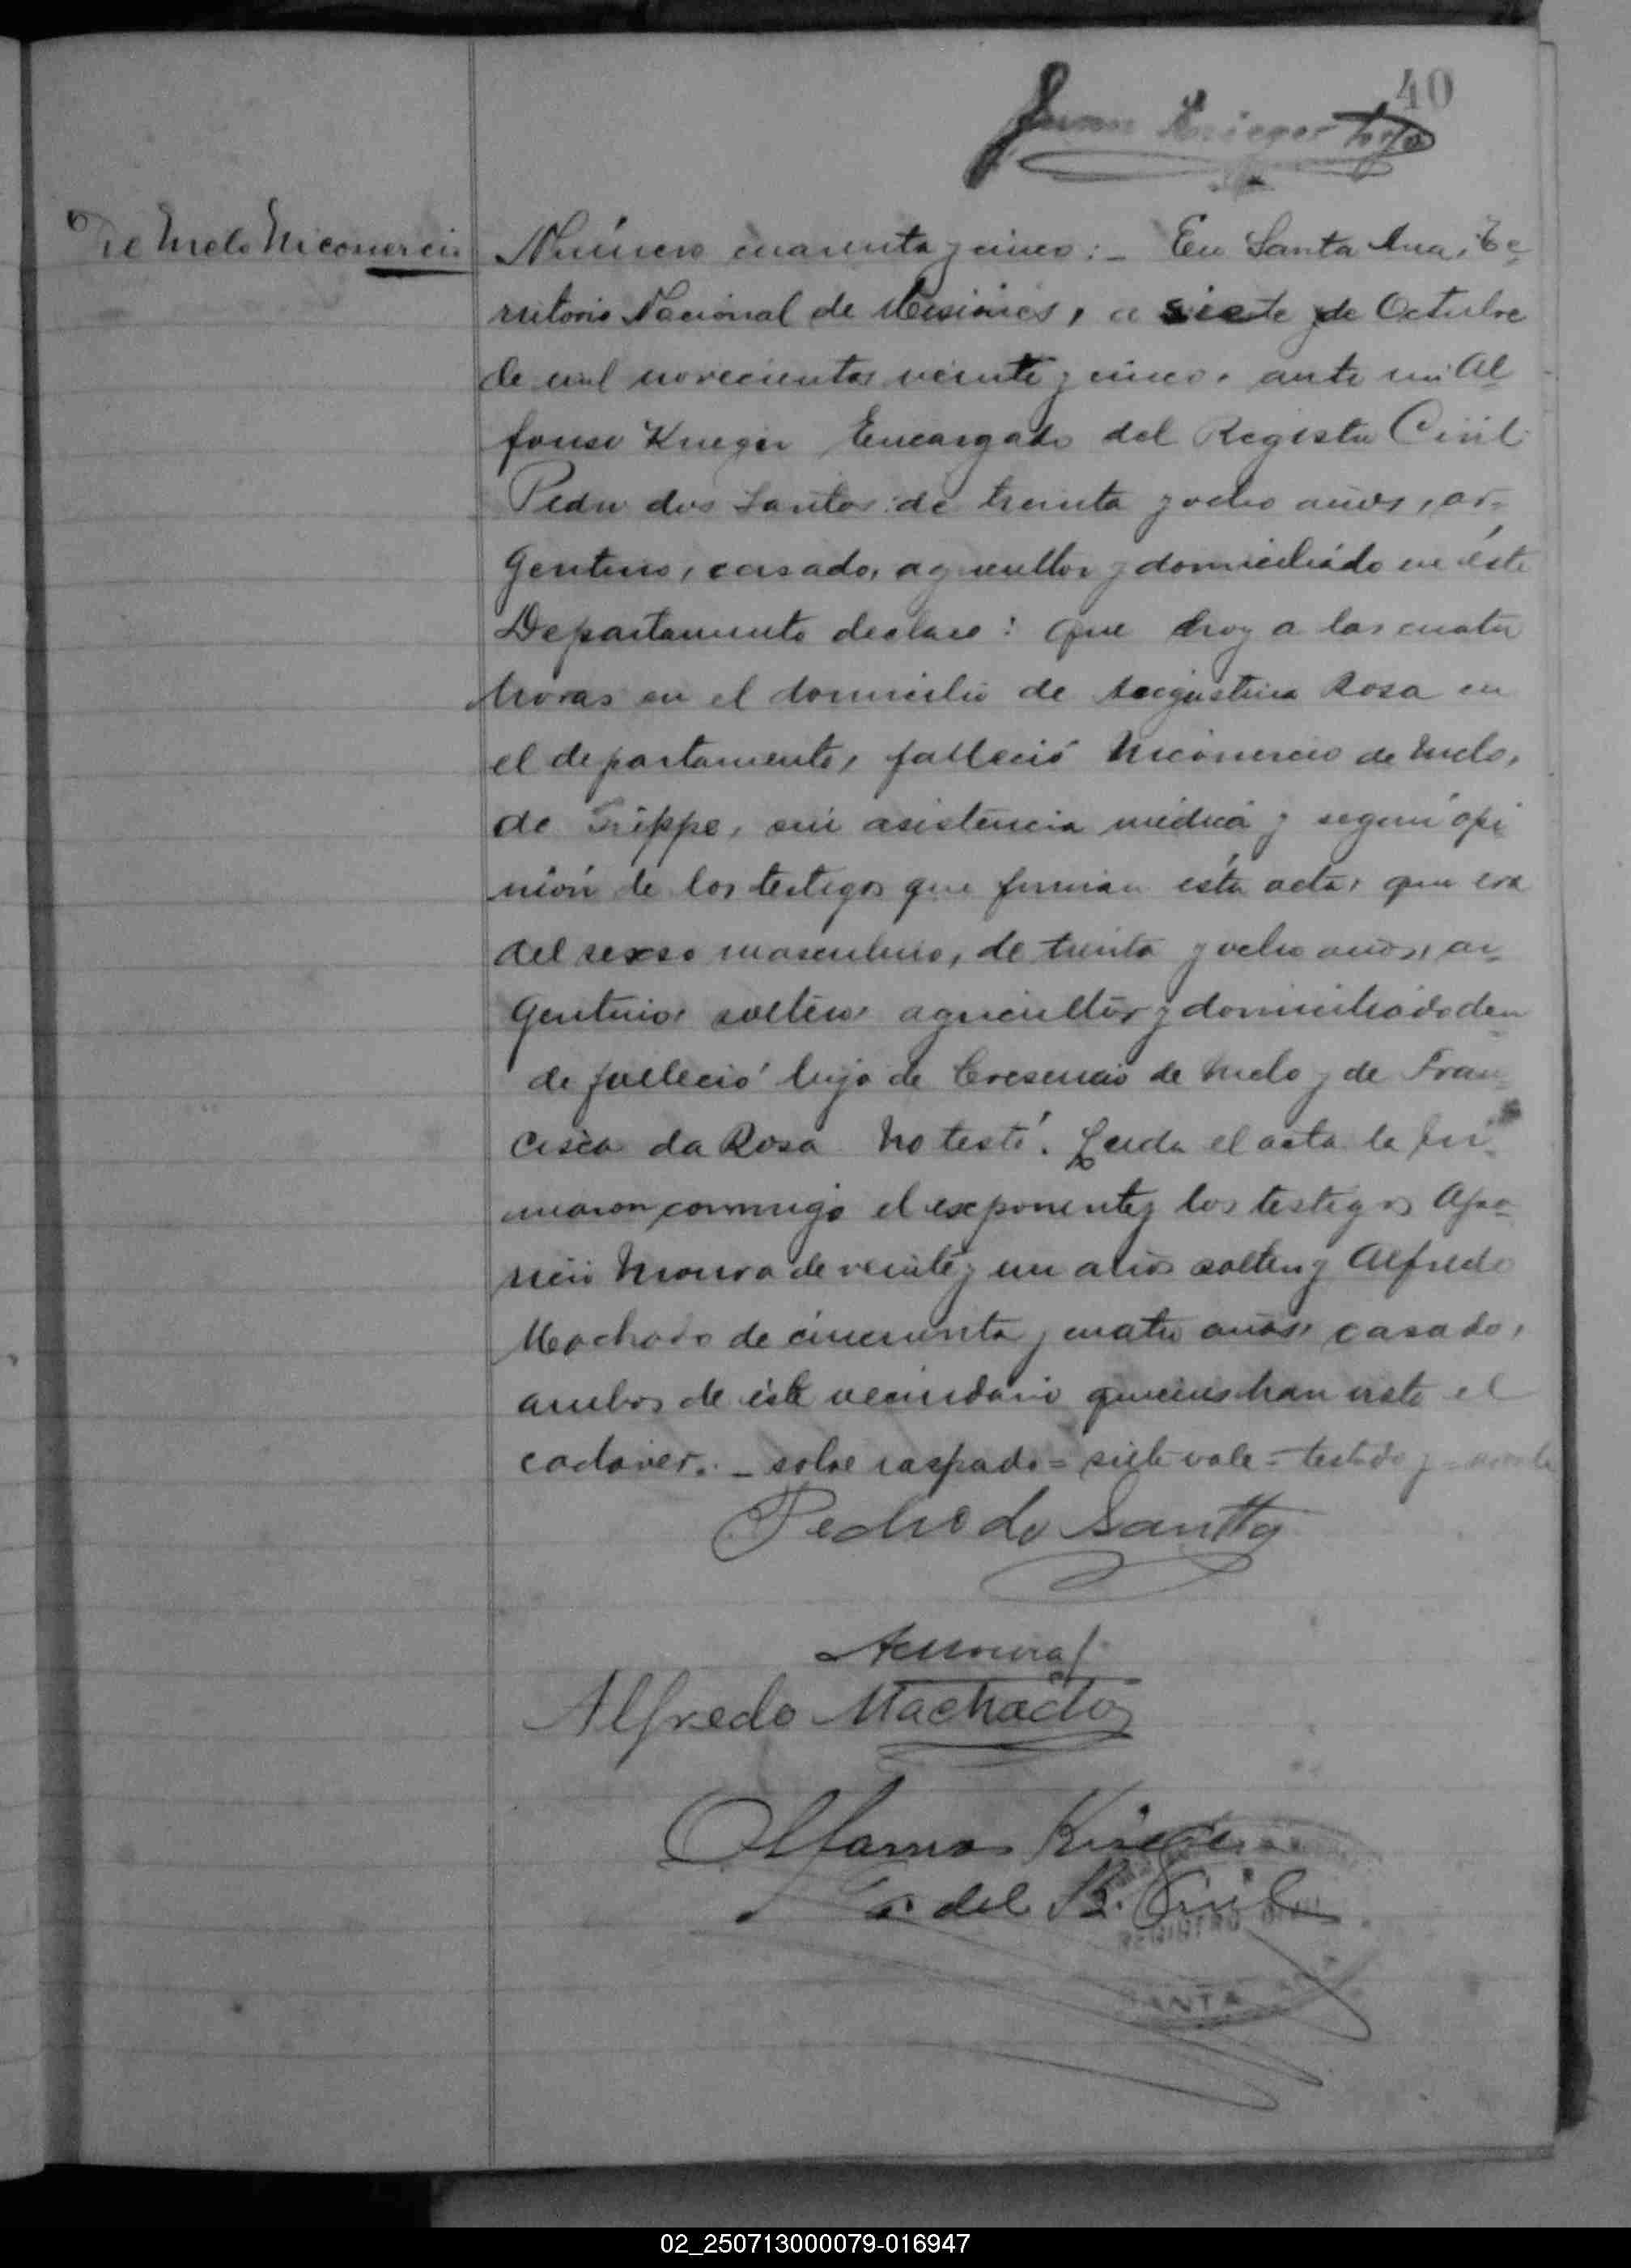 40
Juan Krieger
De Melo Niconercio
Número cuarenta y cinco:- En Santa Ana, Te-
rritorio Nacional de Misiones, a siete de Octubre
de mil novecientos veinte y cinco, ante mi Al-
fonso Krieger Encargado del Registro Civil
Pedro dos Santos de treinta y ocho años, ar-
gentino, casado, agricultor y domiciliado en éste
Departamento declaro: Que hoy a las cuatro
horas en el domicilio de Augustina Rosa en
el departamento, falleció Niconercio de Melo,
de Grippe, sin asistencia médica y según opi
nión de los testigos que firman ésta acta, que era
del sexso masculino, de treinta y ocho años, ar-
gentino, soltero, agricultor y domiciliado don
de falleció hijo de Cresencio de Melo y de Fran-
cisca da Rosa No testó. Leida el acta la fir-
maron conmigo el exponente y los testigos Apa-
ricio Moura de veinte y un años soltero y Alfredo
Machado de cincuenta y cuatro años, casado,
ambos de éste vecindario quienes han visto el
cadaver. - sobre raspado = siete vale = testado y = no vale
Pedro do Santto
AcMoura
Alfredo Machado
Alfonso Krieger
del R. Civil
REGISTRO CIVIL
SANTA
02_250713000079-016947